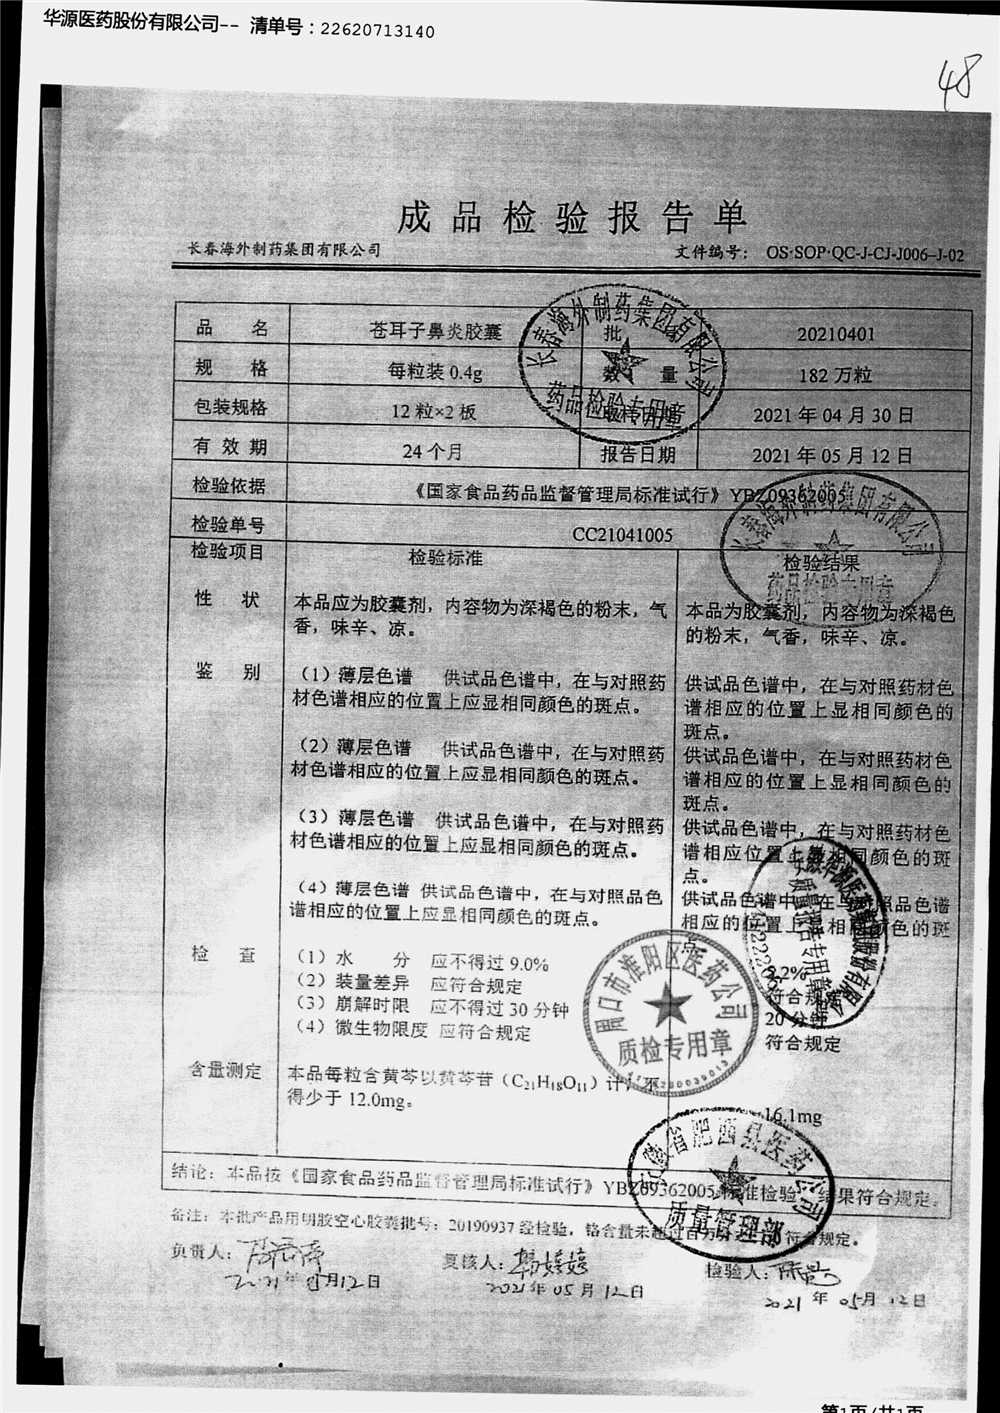 华源医药股份有限公司-- 清单号：22620713140
48
成品检验报告单
长春海外制药集团有限公司 文件编号： OS·SOP·QC-J-CJ-J006-J-02
品 名 苍耳子鼻炎胶囊 批 20210401
规 格 每粒装 0.4g 数 量 182 万粒
包装规格 12 粒×2 板 2021 年 04 月 30 日
有 效 期 24 个月 报告日期 2021 年 05 月 12 日
检验依据 《国家食品药品监督管理局标准试行》YBZ09362005
检验单号 CC21041005
检验项目 检验标准 检验结果
性 状 本品应为胶囊剂，内容物为深褐色的粉末，气 本品为胶囊剂，内容物为深褐色
香，味辛、凉。 的粉末，气香，味辛、凉。
鉴 别 （1）薄层色谱 供试品色谱中，在与对照药 供试品色谱中，在与对照药材色
材色谱相应的位置上应显相同颜色的斑点。 谱相应的位置上显相同颜色的
斑点。
（2）薄层色谱 供试品色谱中，在与对照药 供试品色谱中，在与对照药材色
材色谱相应的位置上应显相同颜色的斑点。 谱相应的位置上显相同颜色的
斑点。
（3）薄层色谱 供试品色谱中，在与对照药 供试品色谱中，在与对照药材色
材色谱相应的位置上应显相同颜色的斑点。 谱相应位置上显相同颜色的斑
点。
（4）薄层色谱 供试品色谱中，在与对照品色 供试品色谱中，在与对照品色谱
谱相应的位置上应显相同颜色的斑点。 相应的位置上显相同颜色的斑
点
检 查 （1）水 分 应不得过 9.0% 2%
（2）装量差异 应符合规定 符合规定
（3）崩解时限 应不得过 30 分钟 20 分钟
（4）微生物限度 应符合规定 符合规定
含量测定 本品每粒含黄芩以黄芩苷（C21H18O11）计，不
得少于 12.0mg。 16.1mg
结论：本品按《国家食品药品监督管理局标准试行》YBZ09362005标准检验，结果符合规定。
备注：本批产品用明胶空心胶囊批号：20190937 经检验，铬含量未超过百万分之 符合规定。
负责人： 复核人：韩婷婷 检验人：
2021年05月12日 2021年05月12日 2021年05月12日
长春海外制药集团有限公司
药品检验专用章
长春海外制药集团有限公司
药品检验专用章
安徽华源医药集团股份有限公司
质量报告专用章
周口市淮阳区医药公司
质检专用章
安徽省肥西县医药公司
质量管理部
第1页/共1页